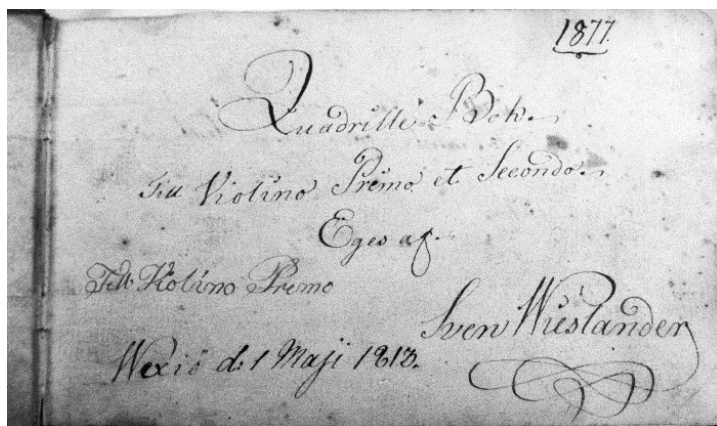 1877.
Quadrille Bok.
Till Violino Premo et Secondo.
Eges af.
Till Violino Premo
Sven Wieslander
Wexiö d: 1 Maji 1813.